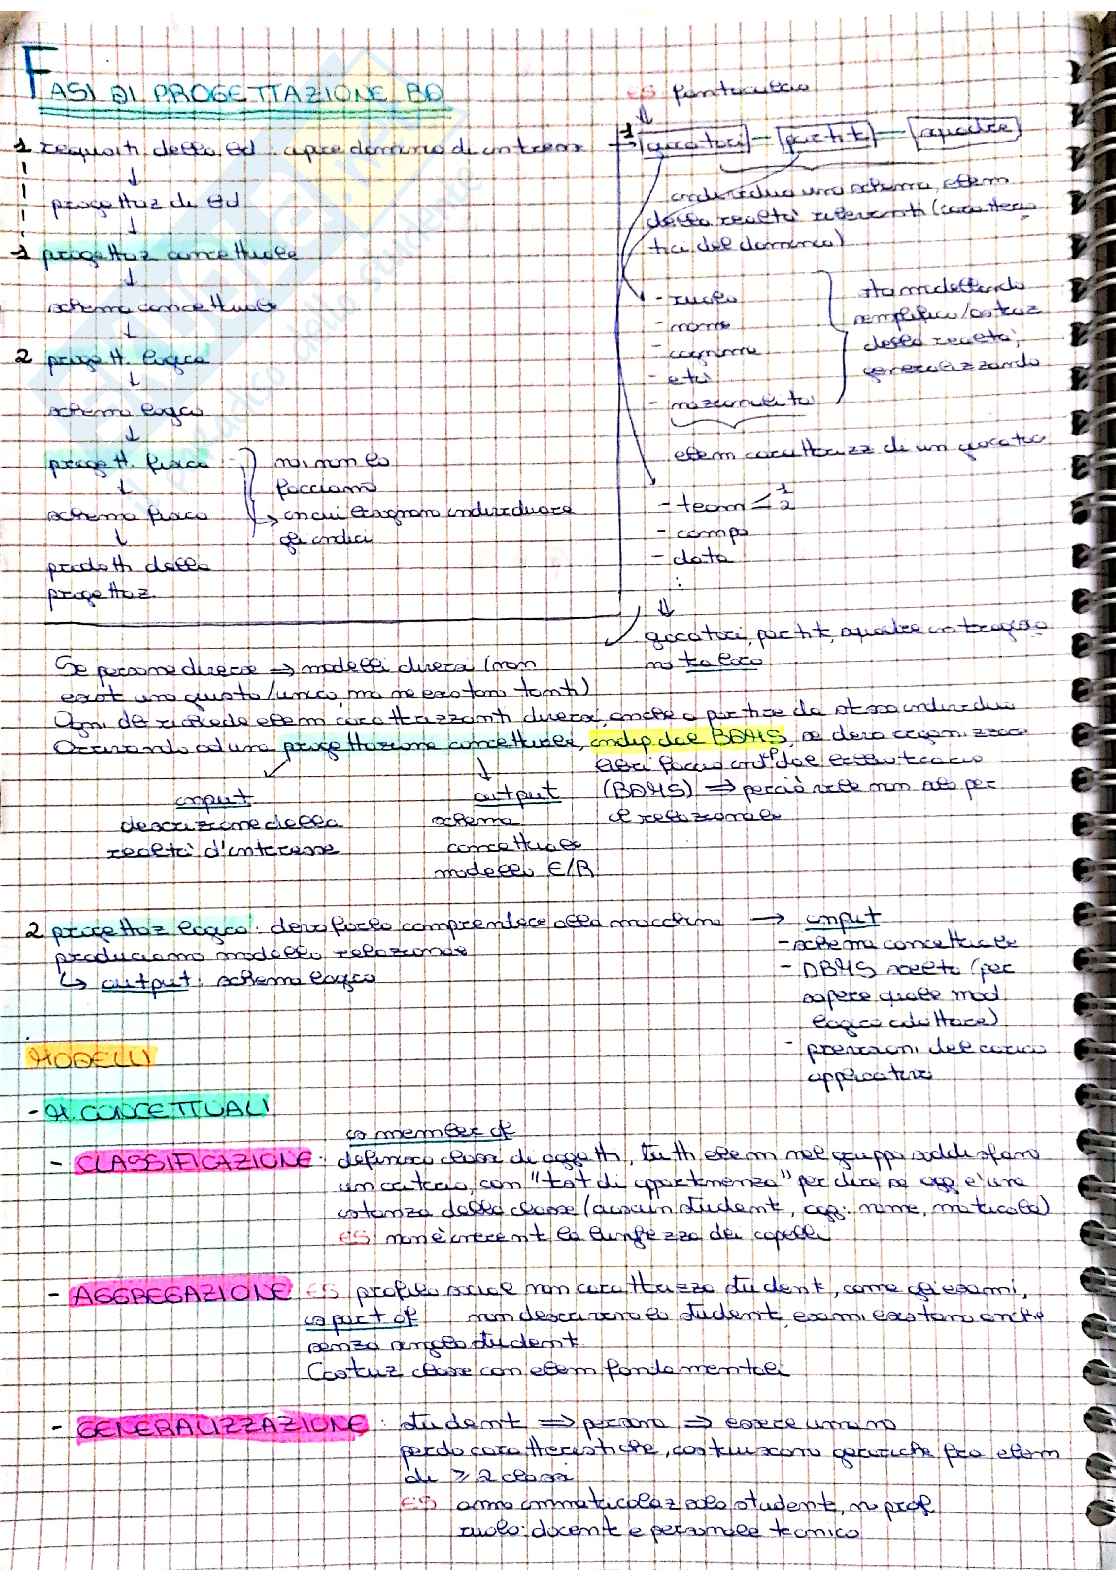 FASI DI PROGETTAZIONE BD
1 requisiti della bd: capire dominio di interesse
↓
progettaz di bd
↓
1 progettaz concettuale
↓
schema concettuale
↓
2 progett. logica
↓
schema logico
↓
progett. fisica
↓
schema fisico
↓
prodotti della
progettaz.
noi non lo
facciamo
↳ in cui bisogna individuare
gli indici
ES fantacalcio
⇓
1 → giocatori — partite — squadre
individuo uno schema, elem
della realtà rilevanti (caratteris
tici del dominio)
- ruolo
- nome
- cognome
- età
- nazionalità
sto modellando
semplifico/astraz
della realtà,
generalizzando
elem caratterizz di un giocatore
- team 1 2
- campo
- data
:
⇓
giocatori, partite, squadre interagiscono
tra loro
Se persone diverse ⇒ modelli diversi (non
esiste uno giusto/unico, ma ne esistono tanti)
Ogni bd richiede elem caratterizzanti diversi, anche a partire da stesso individuo
una progettazione concettuale, indip dal BDMS, se devo organizzare
(BDMS) ⇒ perciò vale non solo per
il relazionale
input
descrizione della
realtà d'interesse
output
schema
concettuale
modello E/R
2 progettaz logica: devo farlo comprendere alla macchina → input
produciamo modello relazionale
↳ output: schema logico
- schema concettuale
- DBMS scelto (per
sapere quale mod.
logico adottare)
- previsioni del carico
applicativo
MODELLI
- M. CONCETTUALI
is member of
- CLASSIFICAZIONE: definisco classi di oggetti, tutti elem nel gruppo soddisfano
un criterio, con "test di appartenenza" per dire se ogg è una
istanza della classe (ciascun studente, ogg: nome, matricola)
ES non è la lunghezza dei capelli
- AGGREGAZIONE ES profilo social non caratterizza studenti, come gli esami,
is part of non descrivono lo studente, esami esistono anche
senza singolo studente
Costruz classe con elem fondamentali
- GENERALIZZAZIONE: studente ⇒ persona ⇒ essere umano
perdo caratteristiche, costruiscono gerarchie fra elem
di ≥ 2 classi
ES anno immatricolaz solo studente, no prof.
ruolo: docente e personale tecnico